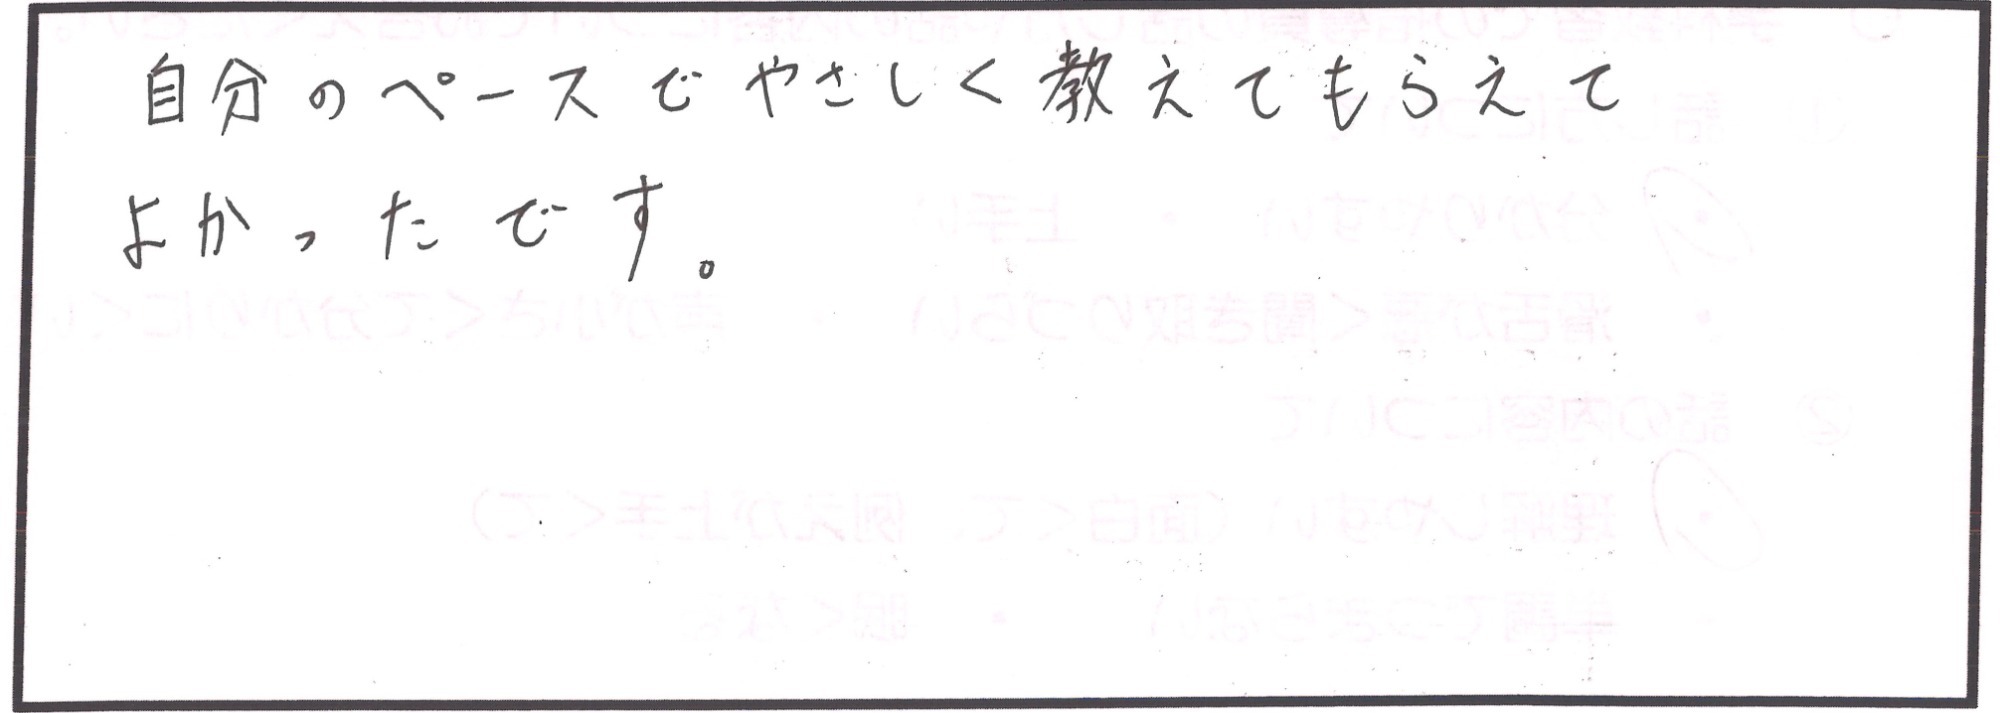 自分のペースでやさしく教えてもらえて
よかったです。